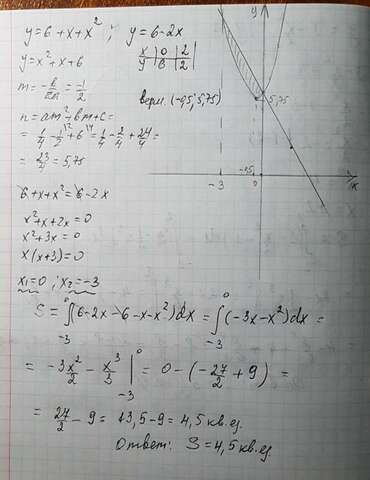 y=6+x+x² ; y=6-2x
x | 0 | 2
y | 6 | 2
y=x²+x+6
m = -b/2a = -1/2
верш. (-0,5; 5,75)
n = am²+bm+c =
= 1/4 - 1/2 + 6 = 1/4 - 2/4 + 24/4 =
= 23/4 = 5,75
6+x+x² = 6-2x
x²+x+2x=0
x²+3x=0
x(x+3)=0
x₁=0 ; x₂=-3
y
5,75
-0,5
-3
0
x
S = ∫₋₃⁰ (6-2x-6-x-x²)dx = ∫₋₃⁰ (-3x-x²)dx =
= -3x²/2 - x³/3 |₋₃⁰ = 0-(-27/2+9) =
= 27/2 - 9 = 13,5-9 = 4,5 кв.ед.
Ответ: S=4,5 кв.ед.